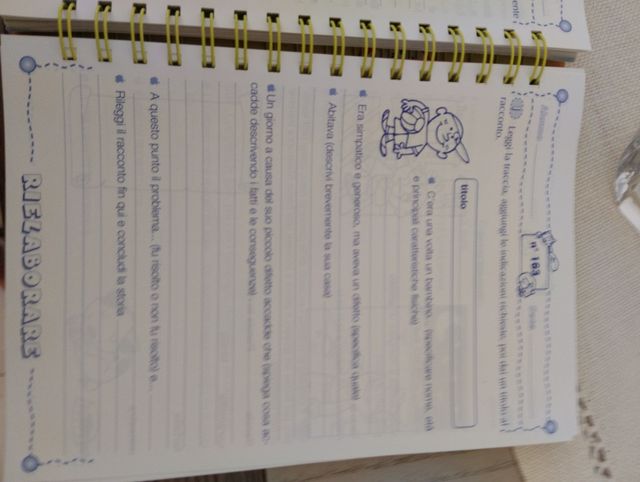 Alunno
Classe
n° 163
Leggi la traccia, aggiungi le indicazioni richieste, poi dai un titolo al
racconto.
titolo
C'era una volta un bambino... (specificare nome, età
e principali caratteristiche fisiche)
Era simpatico e generoso, ma aveva un difetto (specifica quale)
Abitava (descrivi brevemente la sua casa)
Un giorno a causa del suo piccolo difetto accadde che (spiega cosa ac-
cadde descrivendo i fatti e le conseguenze)
A questo punto il problema... (fu risolto o non fu risolto) e...
Rileggi il racconto fin qui e concludi la storia
RIELABORARE